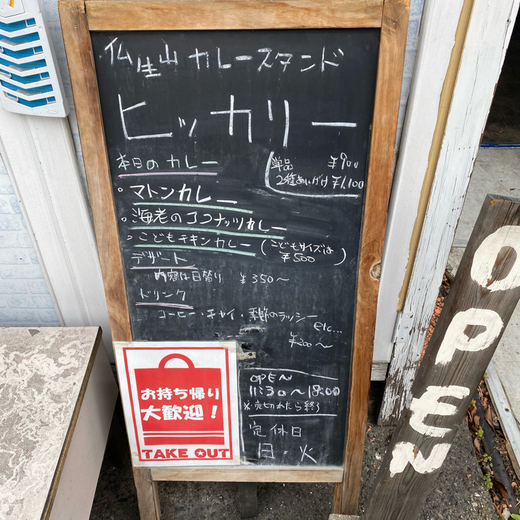 仏生山 カレースタンド
ヒッカリー
本日のカレー
単品 ¥900
2種あいがけ ¥1,100
・マトンカレー
・海老のココナッツカレー
・こどもチキンカレー (こどもサイズは
¥500)
デザート
内容は日替り ¥350〜
ドリンク
コーヒー・チャイ・季節のラッシー
etc...
¥200〜
お持ち帰り
大歓迎！
TAKE OUT
OPEN
11:30〜18:00
※売切れたら終了
定休日
日・火
OPEN